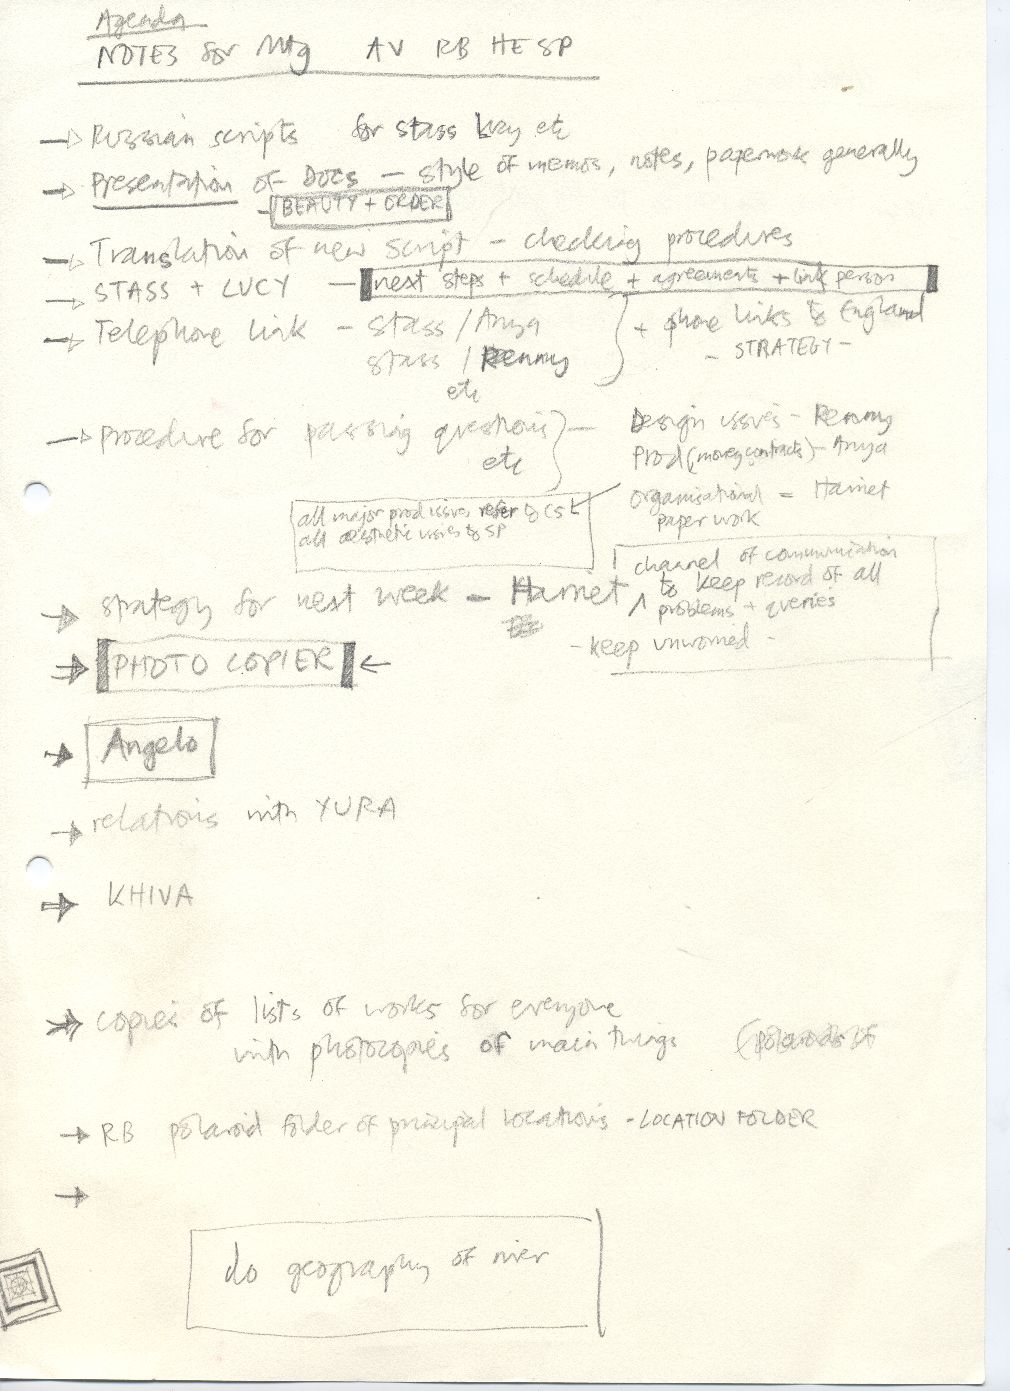 Agenda
NOTES for Mtg AV RB HE SP
Russian scripts for Stass Lucy etc
Presentation of DOCS - style of memos, notes, paperwork generally
- BEAUTY + ORDER
Translation of new script - checking procedures
STASS + LUCY - next steps + schedule + agreements + link person
Telephone link - Stass / Anya
Stass / Renny
etc
+ phone links to England
- STRATEGY -
Procedure for passing questions -
etc
Design issues - Renny
Prod (money contracts) - Anya
organisational = Harriet
paper work
all major prod issues refer to CS L
all aesthetic issues to SP
strategy for next week - Harriet
1 channel of communication
to keep record of all
problems + queries
- keep unworried -
PHOTO COPIER
Angelo
relations with YURA
KHIVA
copies of lists of works for everyone
with photocopies of main things (polaroids if
RB polaroid folder of principal locations - LOCATION FOLDER
do geography of river